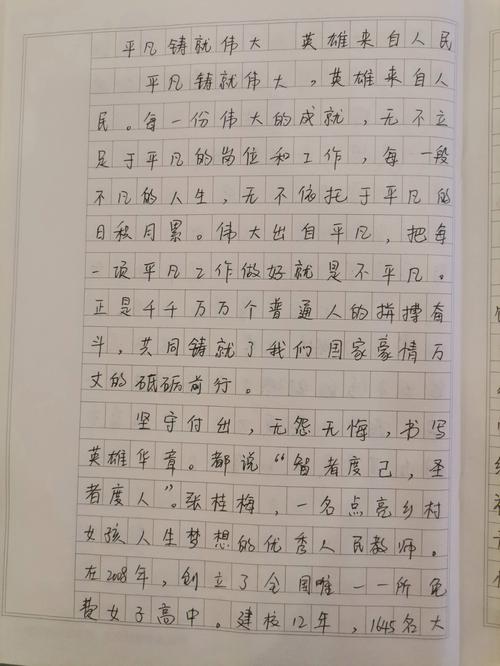 平凡铸就伟大 英雄来自人民
平凡铸就伟大，英雄来自人
民。每一份伟大的成就，无不立
足于平凡的岗位和工作，每一段
不凡的人生，无不依托于平凡的
日积月累。伟大出自平凡，把每
一项平凡工作做好就是不平凡。
正是千千万万个普通人的拼搏奋
斗，共同铸就了我们国家豪情万
丈的砥砺前行。
坚守付出，无怨无悔，书写
英雄华章。都说“智者度己，圣
者度人”。张桂梅，一名点亮乡村
女孩人生梦想的优秀人民教师。
在2008年，创立了全国唯一一所免
费女子高中。建校12年，1645名大